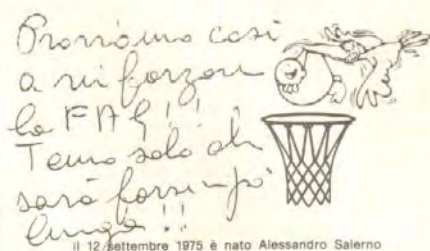 Proviamo così
a rinforzare
la FAG!!
Temo solo che
sarà forse un pò
lunga!!
il 12 settembre 1975 è nato Alessandro Salerno